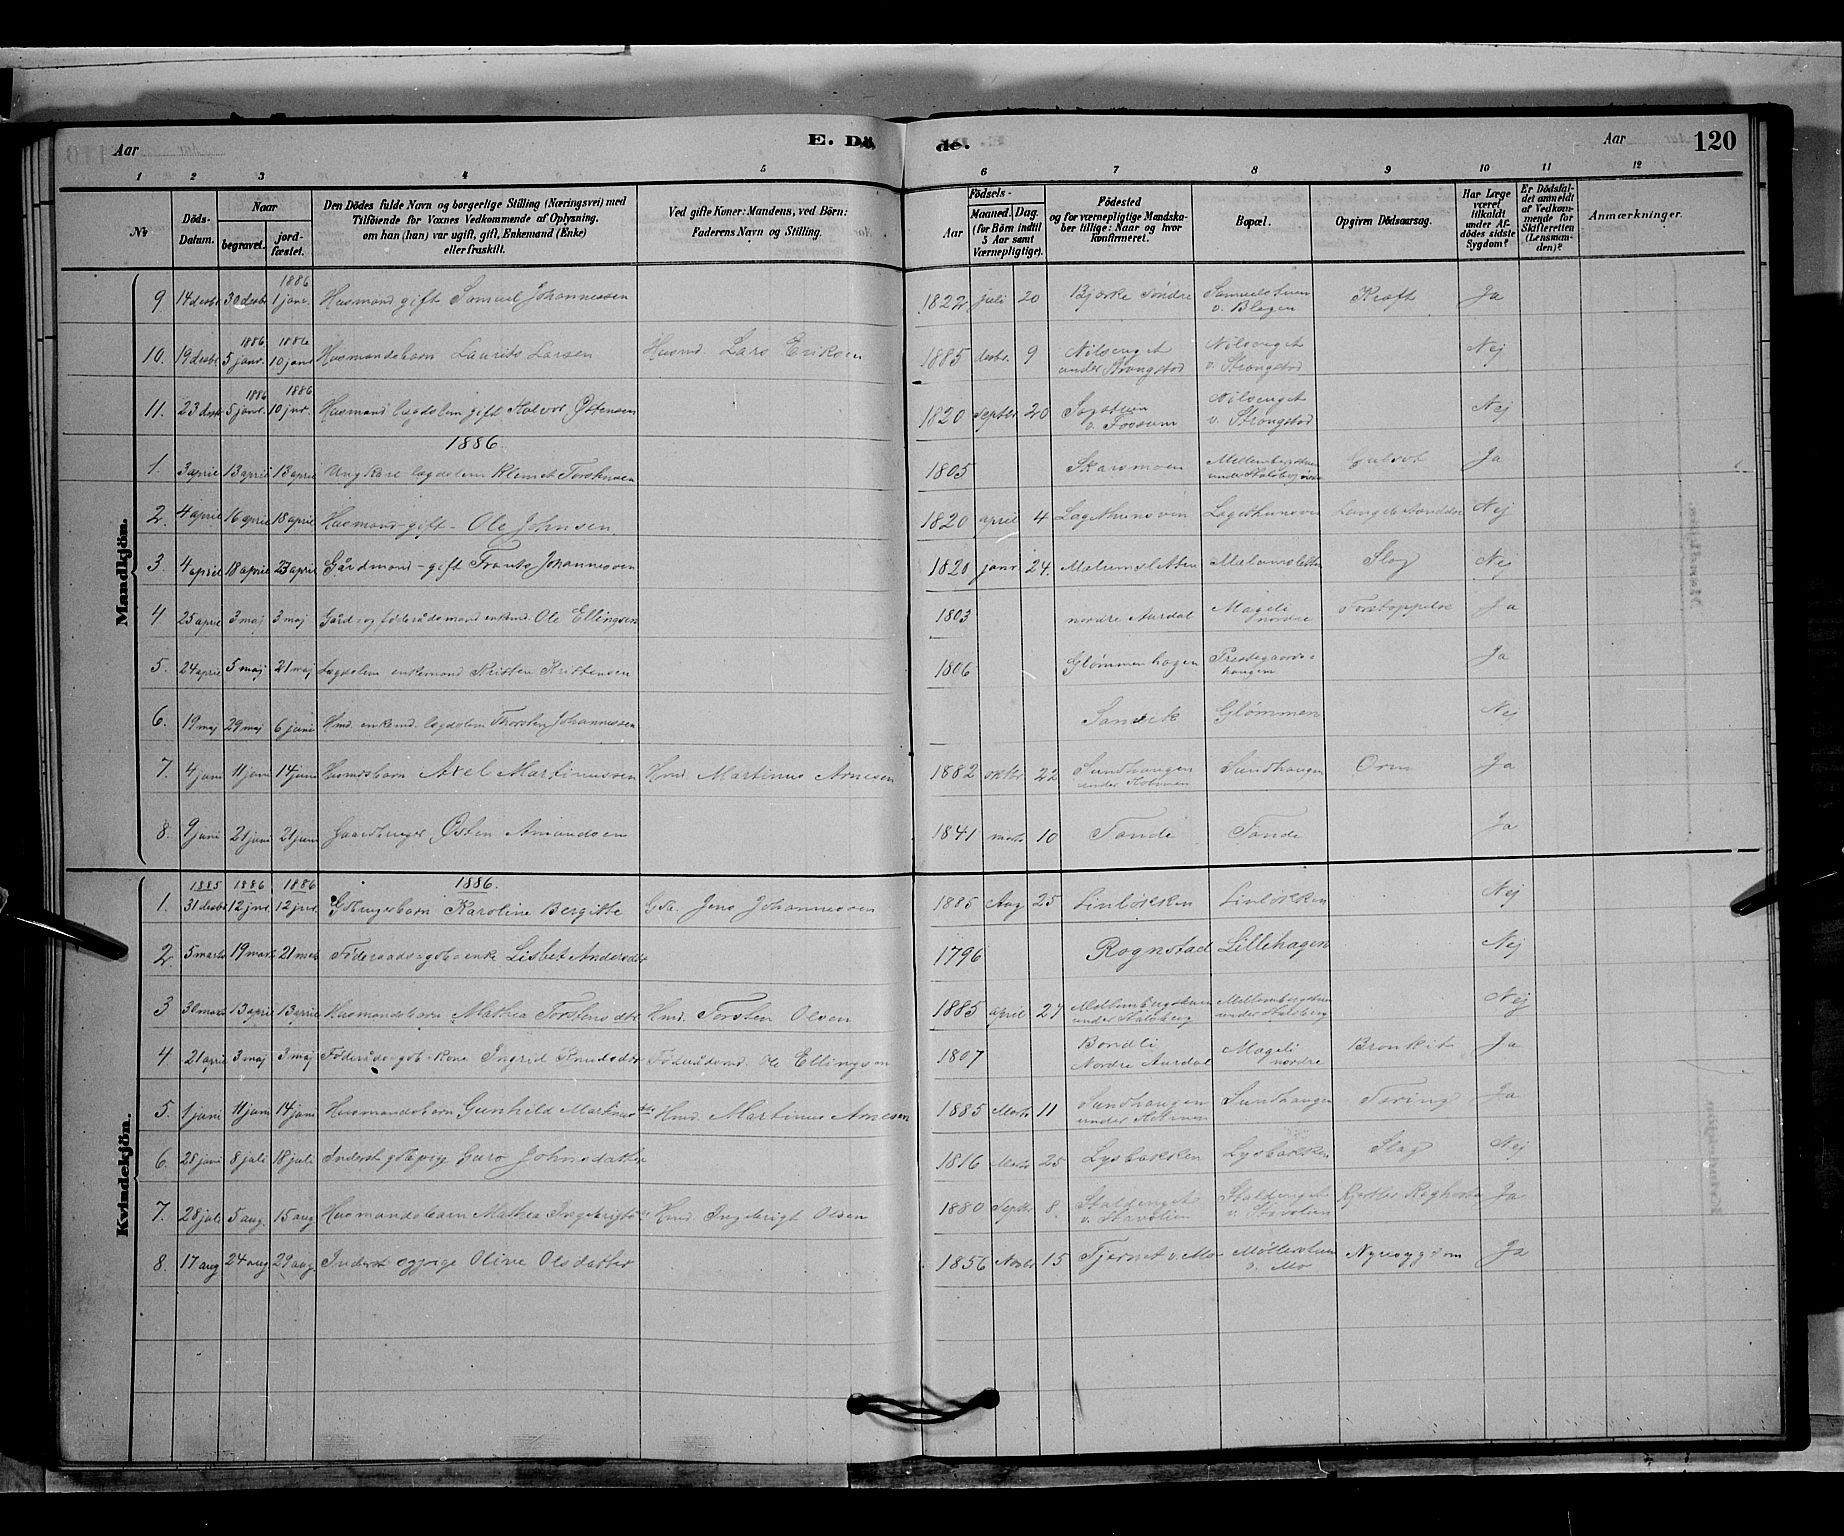 Aar E. Döde. Aar 120
1 2 3 4 5 6 7 8 9 10 11 12
No Döds-Datum. Naar begravet. jordfæstet. Den Dödes fulde Navn og borgerlige Stilling (Næringsvei) med Tilföiende for Voxnes Vedkommende af Oplysning, om han (hun) var ugift, gift, Enkemand (Enke) eller fraskilt. Ved gifte Koner: Mandens, ved Börn: Faderens Navn og Stilling. Födsels- Aar Maaned. Dag. (for Börn indtil 5 Aar samt Værnepligtige). Födested og for værnepligtige Mandskaber tillige: Naar og hvor konfirmeret. Bopæl. Opgiven Dödsaarsag. Har Læge været tilkaldt under Afdödes sidste Sygdom? Er Dödsfaldet anmeldt af Vedkommende for Skifteretten (Lensmanden)? Anmærkninger.
Mandkjön.
9 14 desbr 30 desbr 1886 1 janr. Husmand gift Samuel Johannessen 1822 juli 20 Bjerke söndre Samuelstuen v. Blegen Kræft Ja
10. 19 desbr 1886 5 janr. 1886 10 janr Husmandsbarn Laurits Larsen Husmd. Lars Eriksen 1885 desbr. 9 Nilsenget under Strangstad Nilsenget v. Strangstad Nej
11. 23 desbr 1886 5 janr. 1886 10 jnr. Husmand lægdslem gift Halvor Östensen 1820 septbr 20 v. Fossum Nilsenget v. Strangstad Nej
1886.
1. 3 april 13 april 13 april Ungkarl lægdslem Klemet 1805 Skarsmoen Mellembergstuen Gulsot Ja
2. 4 april 16 april 18 april Husmand - gift - Ole Johnsen 1820 april 4 Nej
3 4 april 18 april 23 april Gårdmand - gift Frants Johannessen 1820 janr 24. Melumsletten Melumsletten Slag Nej
4 25 april 3 maj 3 maj Gård- og föderådsmand enkemd. Ole Ellingsen 1803 nordre Aurdal Mageli nordre Forstoppelse Ja
5. 24 april 5 maj 21 maj Lægdslem enkemand Kristen Kristensen 1806 Glömmenhagen Prestegaardshaugen Ja
6. 19 maj 29 maj 6 juni Hmd. enkemd. lægdslem Thorsten Johannessen Sanvik Glömmen Nej
7. 4 juni 11 juni 14 juni Husmdsbarn Axel Martinussen Hmd. Martinus Arnesen 1882 oktbr 22 Sundhaugen under Holmen Sundhaugen Orm Ja
8. 9 juni 21 juni 21 juni Gaardbruger Östen Amundsen 1841 marts 10 Tande Tande Ja
Kvindekjön.
1886.
1. 1885 31 desbr 1886 12 jnr. 1886 12 jnr. Gdbrugerbarn Karoline Bergitte Gdb. Jens Johannessen 1885 Aug 25 Linlökken Linlökken Nej
2. 5 marts 19 marts 21 mrts Föderaads-gdb-enke Lisbet Andersdtr 1796 Rognstad Lillehagen Nej
3 30 marts 13 april 13 april Husmandsbarn Mathea Torstensdtr. Hmd. Torsten Olsen 1885 april 27 Mellembergstuen under Stalsberg Mellembergstuen under Stalsberg Nej
4. 21 april 3 maj 3 maj Föderåds-gdb-kone Ingrid Knudsdtr Föderådsmd. Ole Ellingsen 1807 Bondli Nordre Aurdal Mageli nordre Bronkit Ja
5. 1 juni 11 juni 14 juni Husmandsbarn Gunhild Martinusdtr Hmd. Martinus Arnesen 1885 Marts 11 Sundhaugen under Holmen Sundhaugen Tæring Ja
6. 28 juni 8 juli 18 juli Inderst Guro Johnsdatter 1816 Marts 25 Lysbakken Lysbakken Slag Nej
7. 28 juli 5 aug. 15 aug Husmandsbarn Mathea Ingebrigtsdtr Hmd. Ingebrigt Olsen 1880 Septbr 8. v. Stavslien v. Stavslien Ja
8. 17 aug 24 aug 29 aug Inderst Olive Olsdatter 1856 Novbr 15 Tjernet v. Mo Möllerstuen v. Mo Nyresygdom Ja